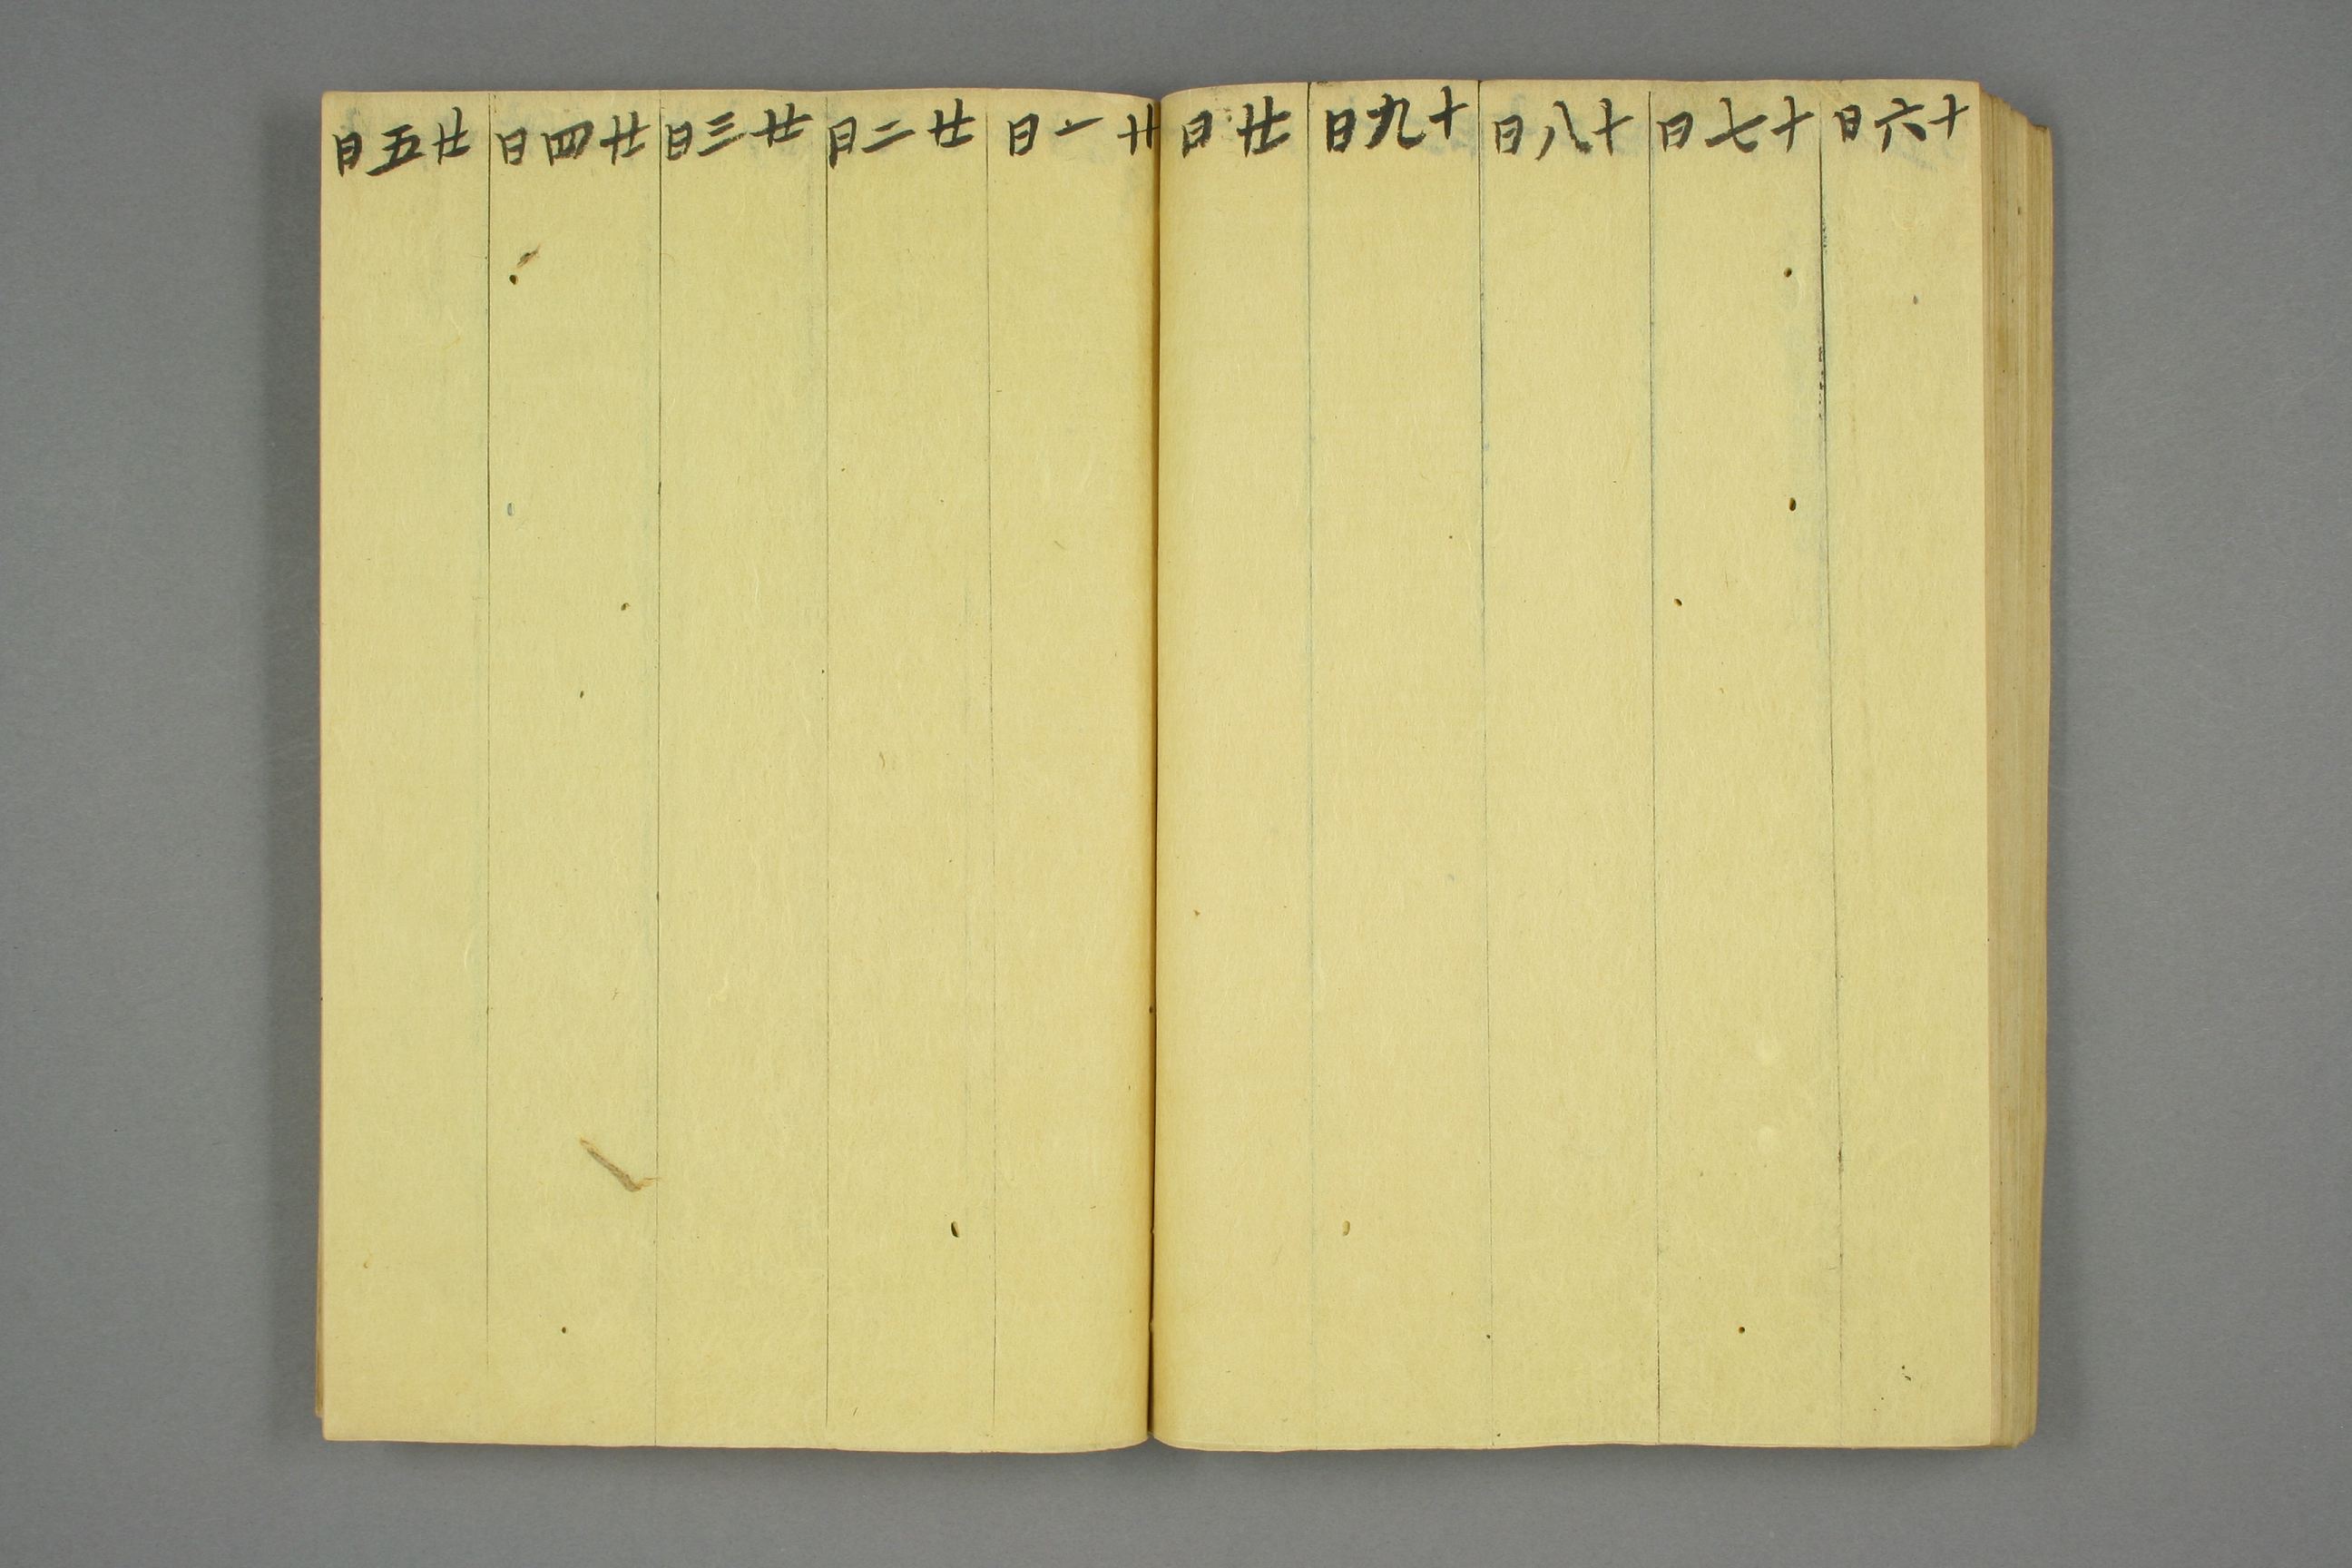 十六日
十七日
十八日
十九日
廿日
廿一日
廿二日
廿三日
廿四日
廿五日